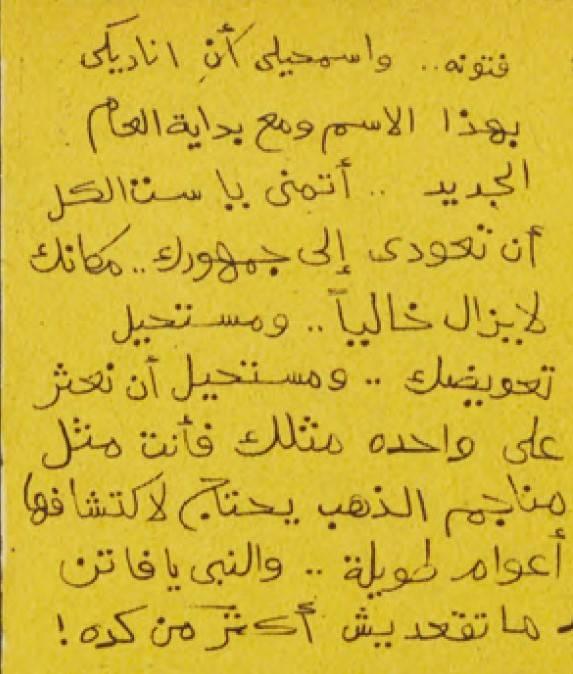 فتونه.. واسمحيلى أن اناديكى
بهذا الاسم ومع بداية العام
الجديد .. أتمنى يا ست الكل
أن تعودى إلى جمهورك.. مكانك
لايزال خالياً.. ومستحيل
تعويضك .. ومستحيل أن نعثر
على واحده مثلك فأنت مثل
مناجم الذهب يحتاج لاكتشافها
أعوام طويلة .. والنبى يا فاتن
ما تقعديش أكثر من كده!